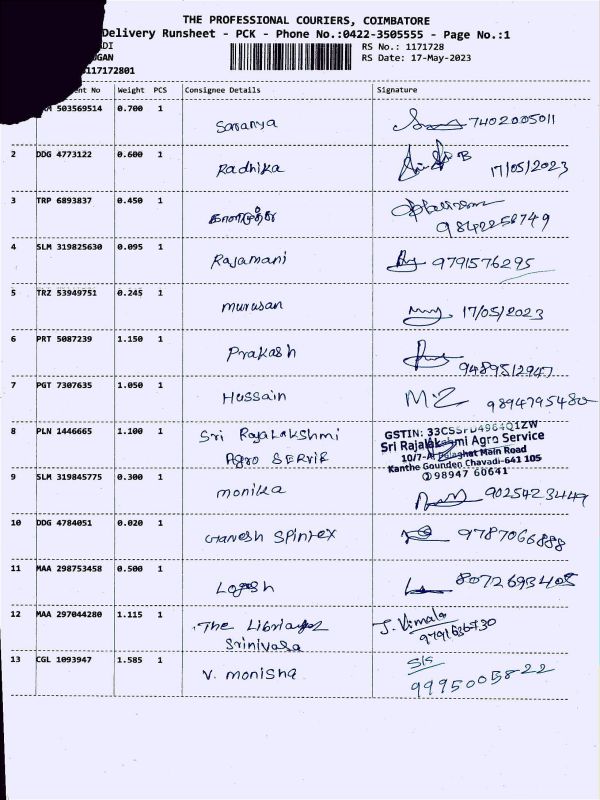 THE PROFESSIONAL COURIERS, COIMBATORE
Delivery Runsheet - PCK - Phone No.:0422-3505555 - Page No.:1
RS No.: 1171728
RS Date: 17-May-2023
117172801
nt No Weight PCS Consignee Details Signature
503569514 0.700 1 Saranya 7402005011
2 DDG 4773122 0.600 1 Radhika 17/05/2023
3 TRP 6893837 0.450 1 9842258749
4 SLM 319825630 0.095 1 Rajamani 9791576295
5 TRZ 53949751 0.245 1 murusan 17/05/2023
6 PRT 5087239 1.150 1 Prakash 9489512947
7 PGT 7307635 1.050 1 Hussain 9894795480
8 PLN 1446665 1.100 1 Sri Rajalakshmi
Agro
GSTIN:
Sri Rajalakshmi Agro Service
Main Road
Kanthe Gounden Chavadi-641 105
98947 60641
9 SLM 319845775 0.300 1 monika 9025423449
10 DDG 4784051 0.020 1 Ganesh Spintex 9787066888
11 MAA 298753458 0.500 1 Logesh 8072693408
12 MAA 297044280 1.115 1 The
Srinivasa
J. Vimala
13 CGL 1093947 1.585 1 V. monisha
9995005822